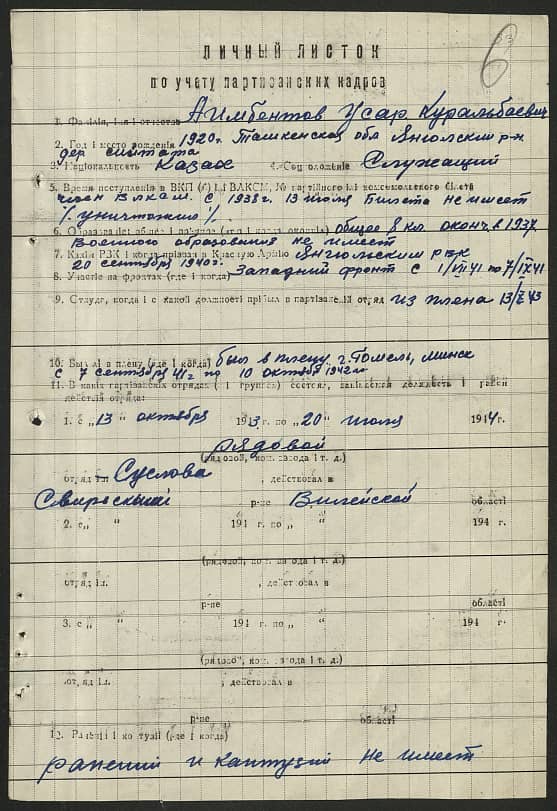 6
ЛИЧНЫЙ ЛИСТОК
по учету партизанских кадров
1. Фамилия, имя и отчество Аимбентов Усар Куральбаевич
2. Год и место рождения 1920г. Ташкенская обл Янгюльский р-н
3. Национальность Казах 4. Соц. положение Служащий
5. Время поступления в ВКП (б) или ВЛКСМ, № партийного или комсомольского билета
член Влксм. с 1938г. 19 июля Билета не имеет
/уничтожил/.
6. Образование общее 8 кл. оконч. в 1937
Военного образования не имеет
7. Каким РВК и когда призван в Красную Армию Янгюльским рвк
20 сентября 1940г.
8. Участие на фронтах (где и когда) Западный фронт с 1/VII 41 по 7/IX 41
9. Откуда, когда и с какой должности прибыл в партизанский отряд из плена 13/X 43
10. Был ли в плену (где и когда) был в плену г. Гомель, Минск
с 7 сентября 41г по 10 октября 1942г
11. В каких партизанских отрядах (и группах) состоял, занимаемая должность и район
действий отряда:
1. с „13" октября 1943 г. по „20" июля 1944 г.
рядовой
(рядовой, ком. взвода и т. д.)
отряд им. Суслова , действовал в
р-не Вилейской области
2. с „ " 194 г. по „ " 194 г.
(рядовой, ком. взвода и т. д.)
отряд им. , действовал в
р-не области
3. с „ " 194 г. по „ " 194 г.
(рядовой, ком. взвода и т. д.)
отряд им. , действовал в
р-не области
12. Ранения и контузии (где и когда)
ранений и контузий не имеет